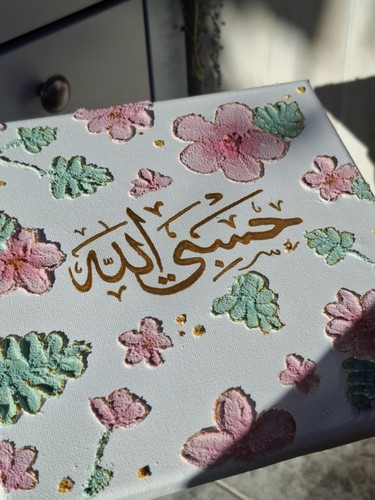 حسبي الله